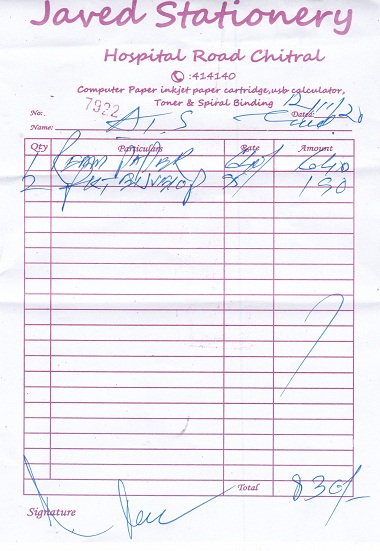 Javed Stationery
Hospital Road Chitral
:414140
Computer Paper inkjet paper cartridge,usb calculator,
Toner & Spiral Binding
No: 7922 Dated: 12/11/20
Name: A.S
Qty Particulars Rate Amount
1 PAPER 640/ 640
2 190
Total 830/-
Signature